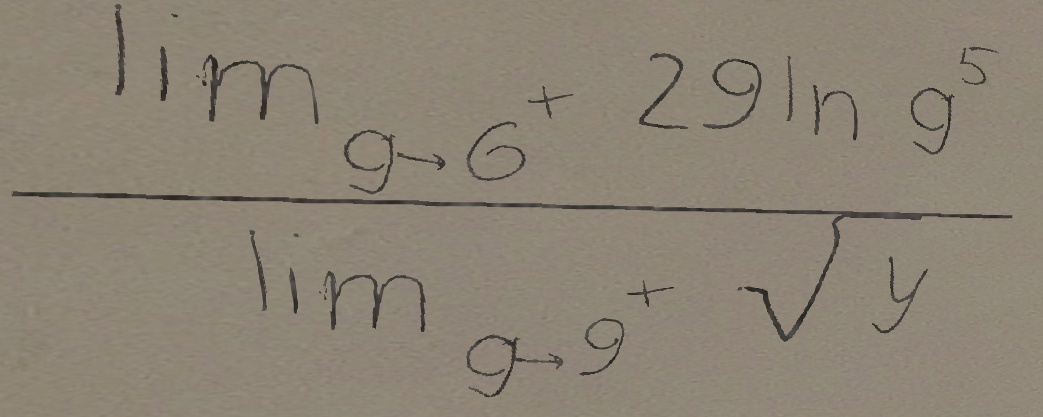 lim g→6⁺ 29 ln g⁵
lim g→9⁺ √y